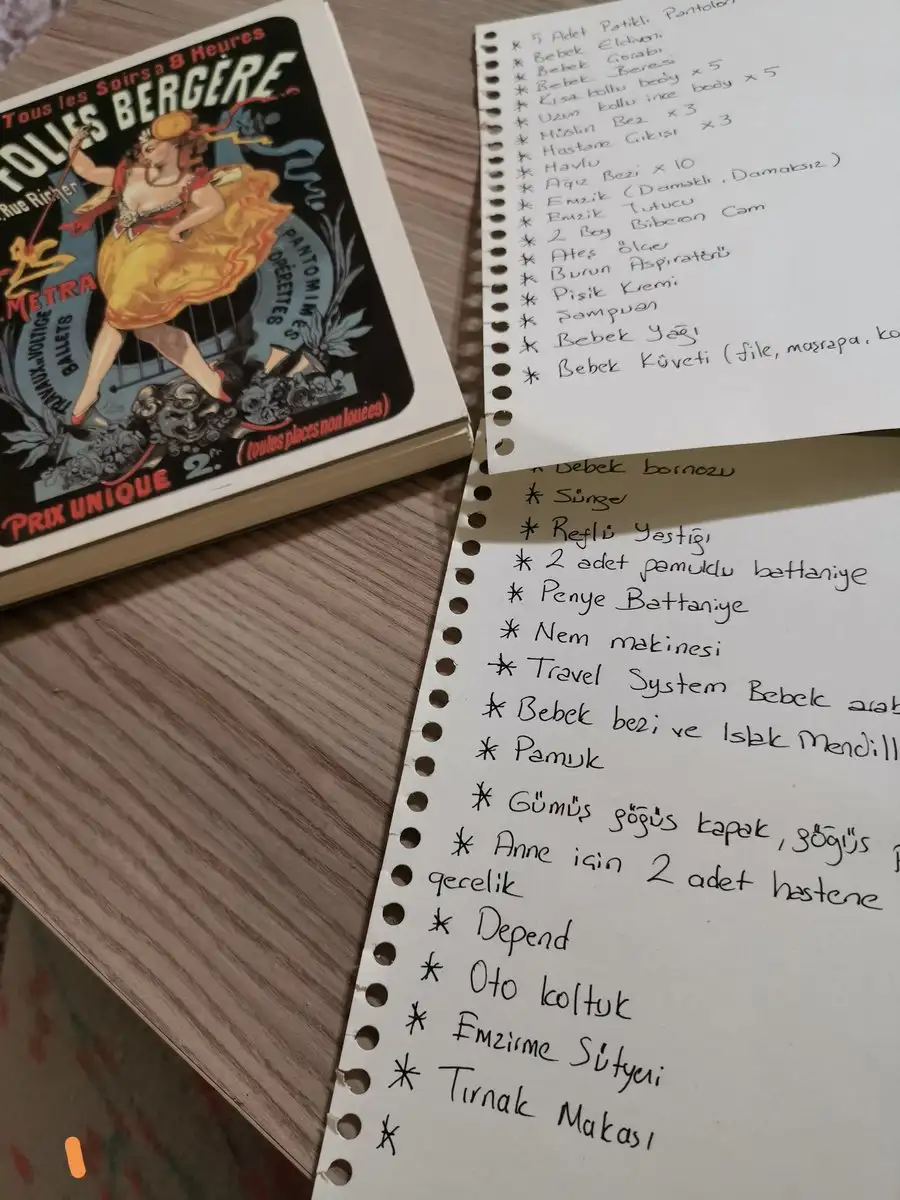 Tous les Soirs à 8 Heures
FOLIES BERGÈRE
Rue Richer
METRA
TRAVAUX DE VOLTIGE
BALLETS
PANTOMIMES
OPÉRETTES
PRIX UNIQUE 2f.
(toutes places non louées)
* 5 Adet Patikli Pantolon
* Bebek Eldiveni
* Bebek Çorabı
* Bebek Beresi
* Kısa kollu body x 5
* Uzun kollu ince body x 5
* Müslin Bez x 3
* Hastane Çıkışı x 3
* Havlu
* Ağız Bezi x 10
* Emzik (Damaklı, Damaksız)
* Emzik Tutucu
* 2 Boy Biberon Cam
* Ateş Ölçer
* Burun Aspiratörü
* Pişik Kremi
* Şampuan
* Bebek Yağı
* Bebek Küveti (file, maşrapa, ko
* Bebek bornozu
* Sünger
* Reflü Yastığı
* 2 adet pamuklu battaniye
* Penye Battaniye
* Nem makinesi
* Travel System Bebek arab
* Bebek bezi ve Islak Mendill
* Pamuk
* Gümüş göğüs kapak, göğüs
* Anne için 2 adet hastene
gecelik
* Depend
* Oto koltuk
* Emzirme Sütyeni
* Tırnak Makası
*